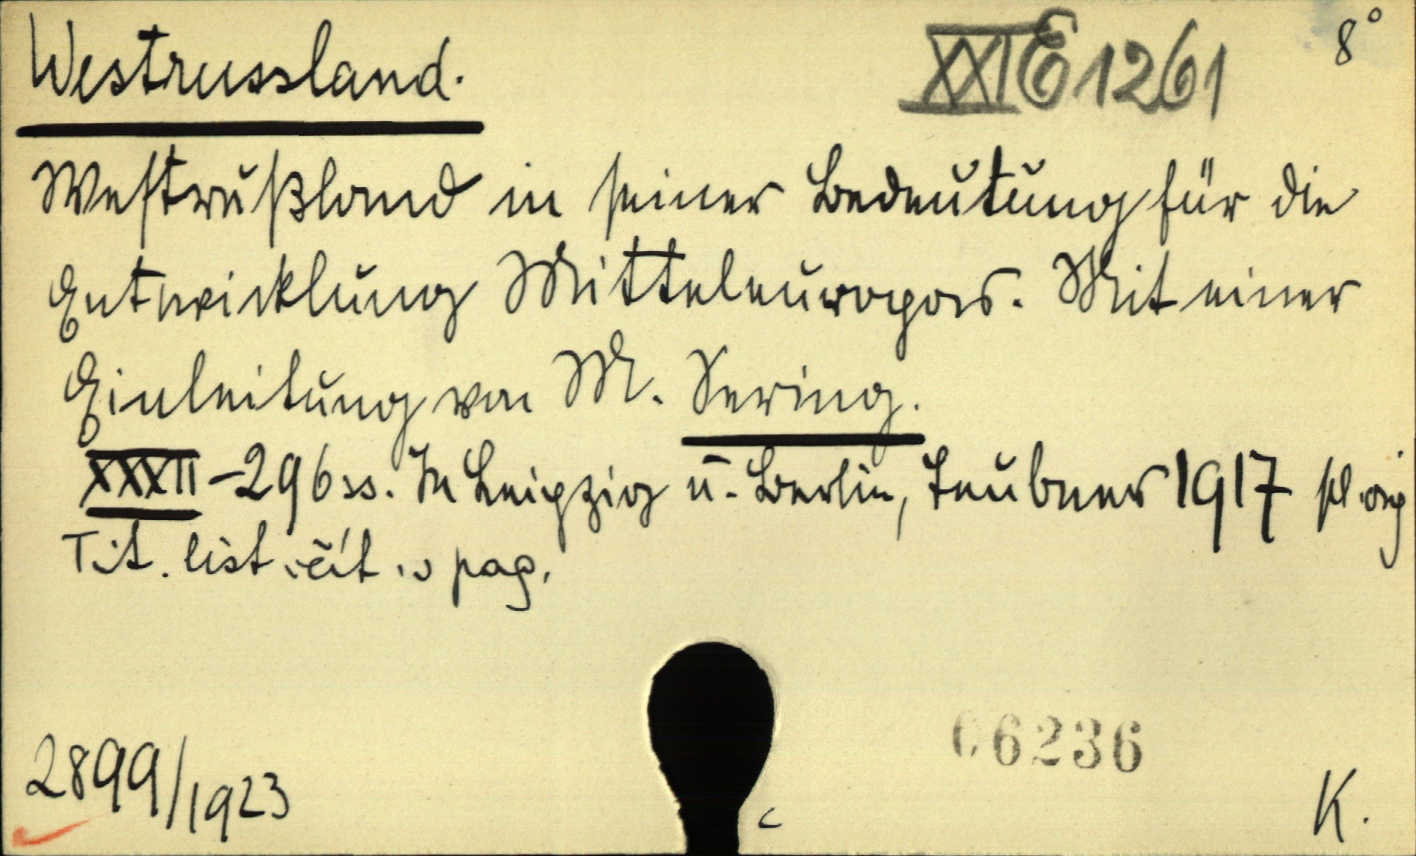 Westrussland.
XXI E 1261
8°
Westrußland in seiner Bedeutung für die
Entwicklung Mitteleuropas. Mit einer
Einleitung von M. Sering.
XXXII - 296 ss. In Leipzig u. Berlin, Teubner 1917 pl. orig
Tit. list. čít. v pag.
2899/1923
06236
K.